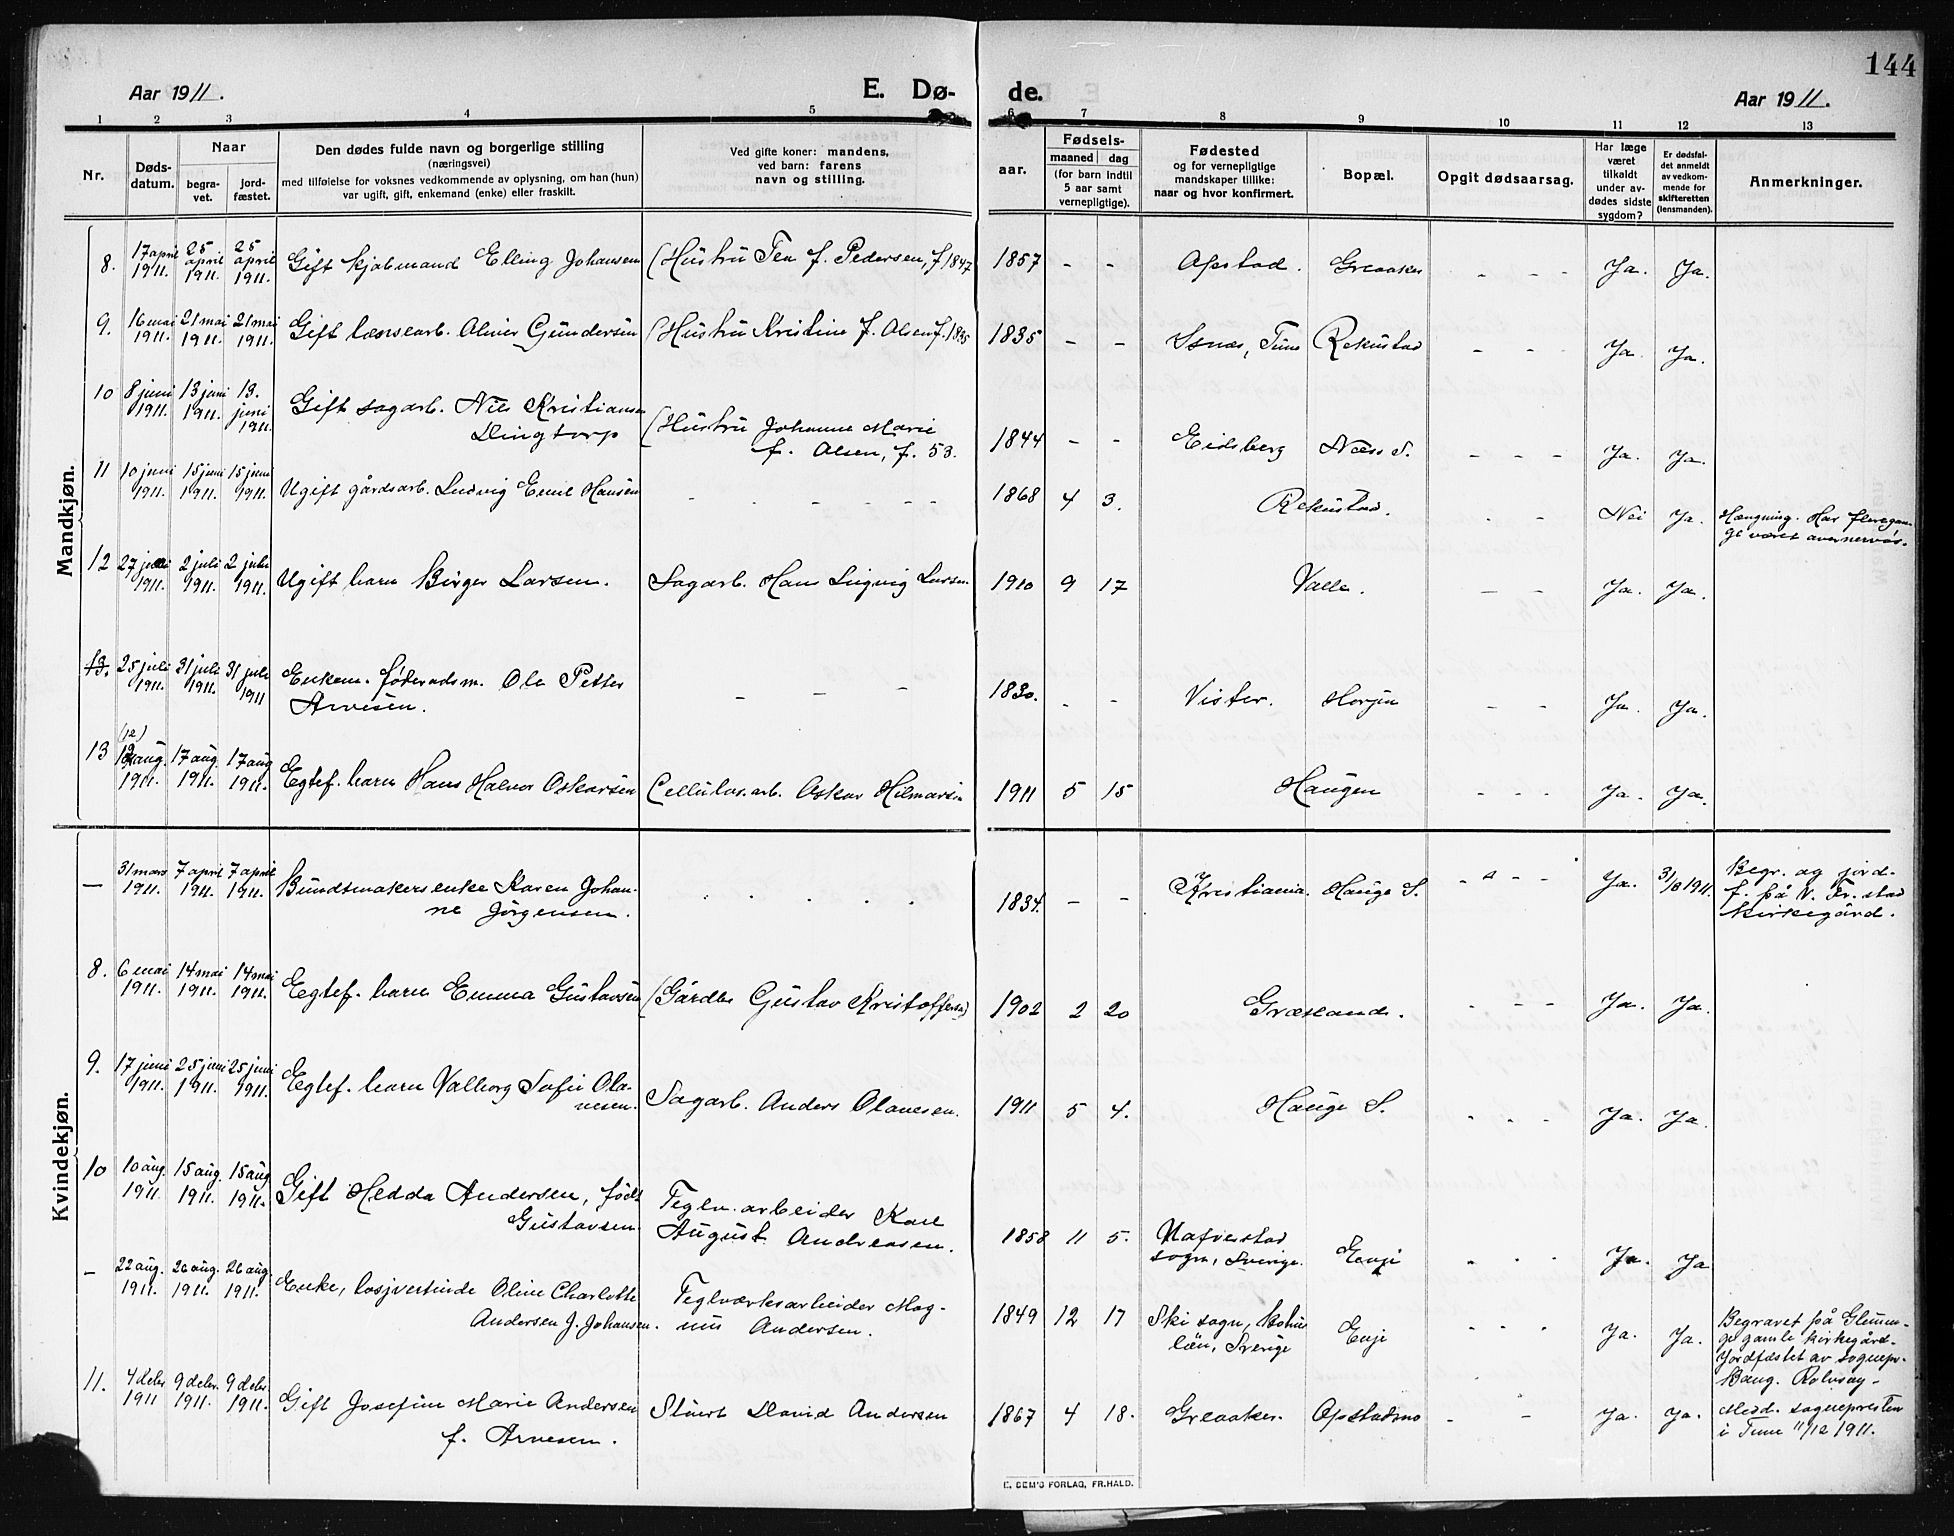 144
Aar 1911.
E. Dø-
de.
Aar 1911.
1 2 3 4 5 6 7 8 9 10 11 12 13
Nr.
Døds-
datum.
Naar
begra-
vet.
jord-
fæstet.
Den dødes fulde navn og borgerlige stilling
(næringsvei)
med tilføielse for voksnes vedkommende av oplysning, om han (hun)
var ugift, gift, enkemand (enke) eller fraskilt.
Ved gifte koner: mandens,
ved barn: farens
navn og stilling.
aar.
Fødsels-
maaned dag
(for barn indtil
5 aar samt
vernepligtige).
Fødested
og for vernepligtige
mandskaper tillike:
naar og hvor konfirmert.
Bopæl.
Opgit dødsaarsag.
Har læge
været
tilkaldt
under av-
dødes sidste
sygdom?
Er dødsfal-
det anmeldt
av vedkom-
mende for
skifteretten
(lensmanden).
Anmerkninger.
Mandkjøn.
8. 17 april 1911. 25 april 1911. 25 april 1911. Gift kjøbmand Elling Johansen (Hustru Tea f. Pedersen, f. 1847 1857 - - Opstad. Greaaker - - - Ja. Ja.
9. 16 mai 1911. 21 mai 1911. 21 mai 1911. Gift lænsearb. Oliver Gundersen (Hustru Kristine f. Olsen f. 1835 1835 - - Isnæs, Tune Rekustad - - - Ja. Ja.
10 8 juni 1911. 13 juni 1911. 13. juni 1911. Gift sagarb. Nils Kristiansen
Dingtorp (Hustru Johanne Marie
f. Olsen, f. 53. 1844 - - Eidsberg Næss S. - - - Ja. Ja.
11 10 juni 1911. 15 juni 1911. 15 juni 1911. Ugift gårdsarb. Ludvig Emil Hansen - - - - - 1868 4 3. Rekustad. - - Nei Ja. Hængning. Har flere gan-
ge været overnervøs.
12 27 juni 1911. 2 juli 1911. 2 juli 1911. Ugift barn Birger Larsen. Sagarb. Hans Ludvig Larsen 1910 9 17 Valle. - - Ja. Ja.
13. 25 juli 1911. 31 juli 1911. 31 juli 1911 Enkem. føderådsm. Ole Petter
Arvesen. - - - 1830. - - Vister. Horjen - - Ja. Ja.
(12)
13 aug. 1911. 17 aug. 1911. 17 aug 1911. Egtef. barn Hans Halvor Oskarsen Cellulos.arb. Oskar Hilmarsen 1911 5 15 Haugen - - - Ja. Ja.
Kvindekjøn.
- 31 mars 1911. 7 april 1911. 7 april 1911. Bundtmakersenke Karen Johan-
ne Jørgensen. - - - - 1834. - - Kristiania. Hauge S. - - - Ja. 31/3 1911. Begr. og jord-
f. på V. Fr.stad
kirkegård.
8. 6 mai 1911. 14 mai 1911. 14 mai 1911. Egtef. barn Emma Gustavsen (Gårdbr Gustav Kristoffersen) 1902 2 20 Græsland. - - - Ja. Ja.
9. 17 juni 1911. 25 juni 1911. 25 juni 1911. Egtef. barn Valborg Sofie Ola-
vesen. Sagarb. Anders Olavesen. 1911 5 4. Hauge S. - - - Ja. Ja.
10 10 aug. 1911. 15 aug. 1911. 15 aug 1911. Gift Hedda Andersen, født
Gustavsen. Teglv.arbeider Karl
August Andreasen. 1858 11 5. Nafverstad
sogn, Sverige. Enje - - - Ja Ja
- 22 aug. 1911. 26 aug. 1911. 26 aug 1911. Enke, losjvertinde Oline Charlotte
Andersen f. Johansen. Teglværksarbeider Mag-
nus Andersen. 1849 12 17 Ski sogn, Bohus
län, Sverige Enje - - - Ja. Ja. Begravet på Glemm-
ge gamle kirkegård.
Jordfæstet av sognepr.
Bang. Rolvsøy.
11. 4 debr 1911 9 debr. 1911. 9 debr. 1911. Gift Josefine Marie Andersen
f. Arvesen. Stuert David Andersen 1867 4 18. Greaaker. Opstadmo - - Ja. Ja. Medd. sognepresten
i Tune 11/12 1911.
E. SEM'S FORLAG, FR.HALD.